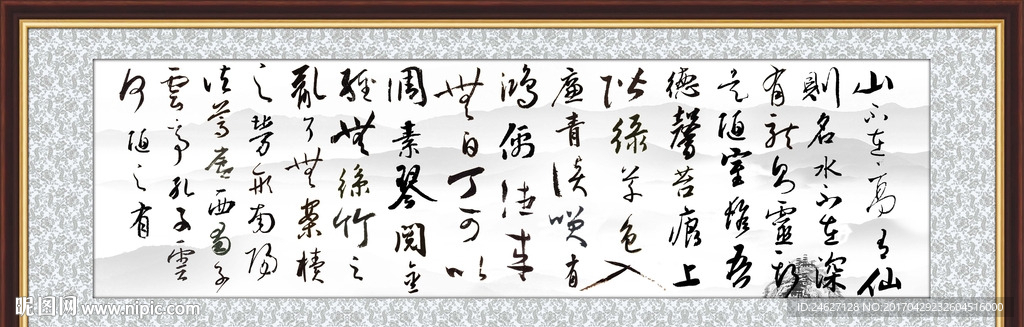 山不在高有仙
則名水不在深
有龍則靈斯
是陋室惟吾
德馨苔痕上
階綠草色入
廉青談笑有
鴻儒往來
無白丁可以
調素琴閱金
經無絲竹之
亂耳無案牘
之勞形南陽
諸葛廬西蜀子
雲亭孔子雲
何陋之有
昵图网 www.nipic.com
ID:24627128 NO:20170429232604516000